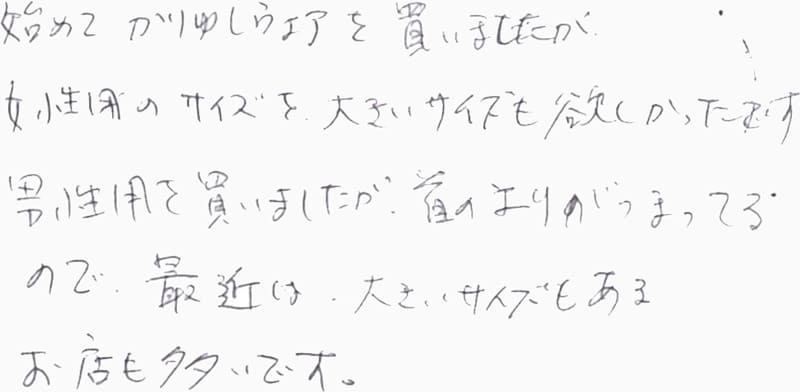 始めて かりゆしウェアを 買いましたが
女性用の サイズを 大きいサイズも欲しかったです
男性用を買いましたが、首のまわりがつまってる
ので、最近は、大きいサイズもある
お店も多いです。